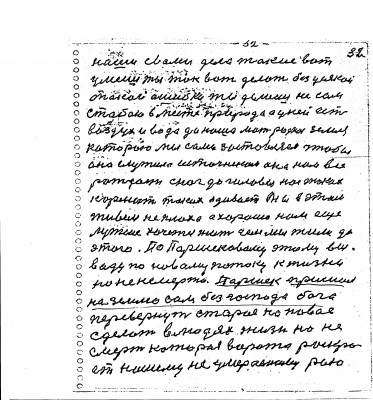 - 52 -
32
наши с вами дела такие вот
умеиш ты так вот делат без усякой
такой ошибки ты дышиш не сам
стабою вместе природа а у ней ест
воздух и вода да наша мат родная земля
которою мы сами заставляем чтобы
она служила источником она нам все
рожает с ног до головы нас таких
кормит таких одивает Мы в этом
живем не плохо а хорошо нам еще
лутше хочется чем мы жили до
этого. По Паршековому этому вы-
воду по новому потоку к жизни
но не к смерти. Паршек пришол
на землю сам без господа бога
перевернут старое на новое
сделат в людях жизн но не
смерт которая ворота
ет нашему не умераемому раю